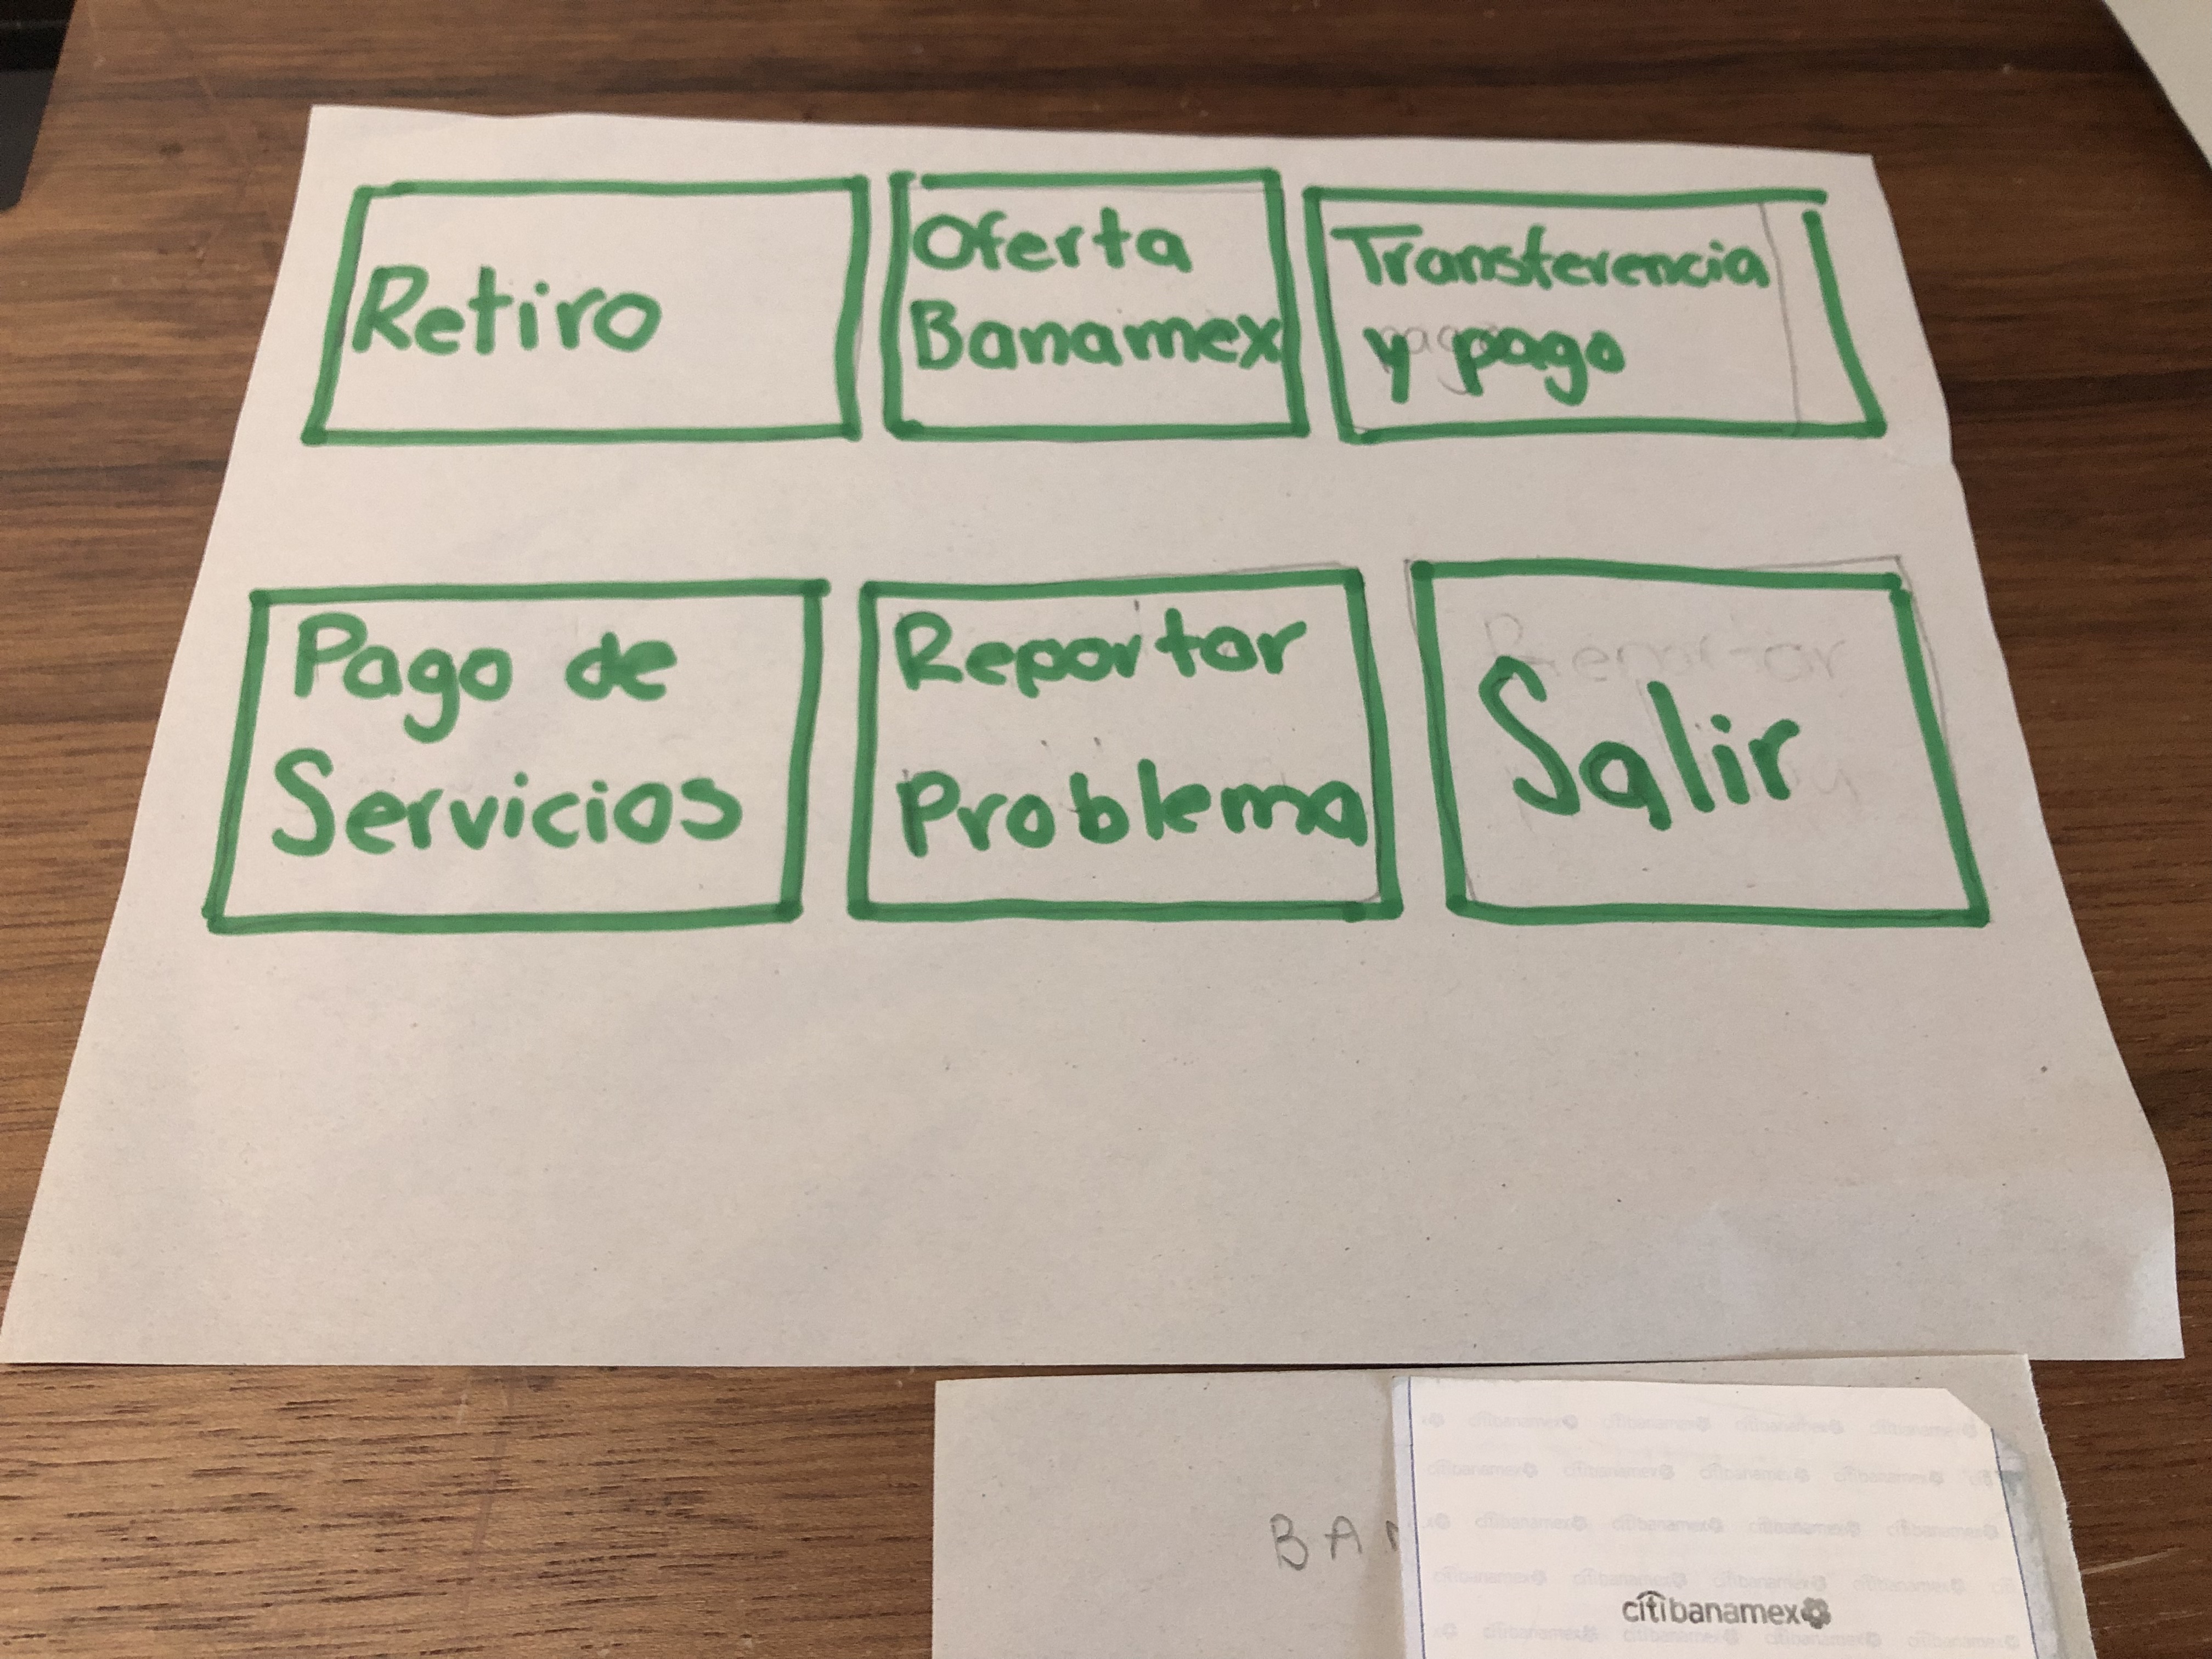 Retiro
Oferta
Banamex
Transferencia
y pago
Pago de
Servicios
Reportar
Problema
Salir
BA
citibanamex